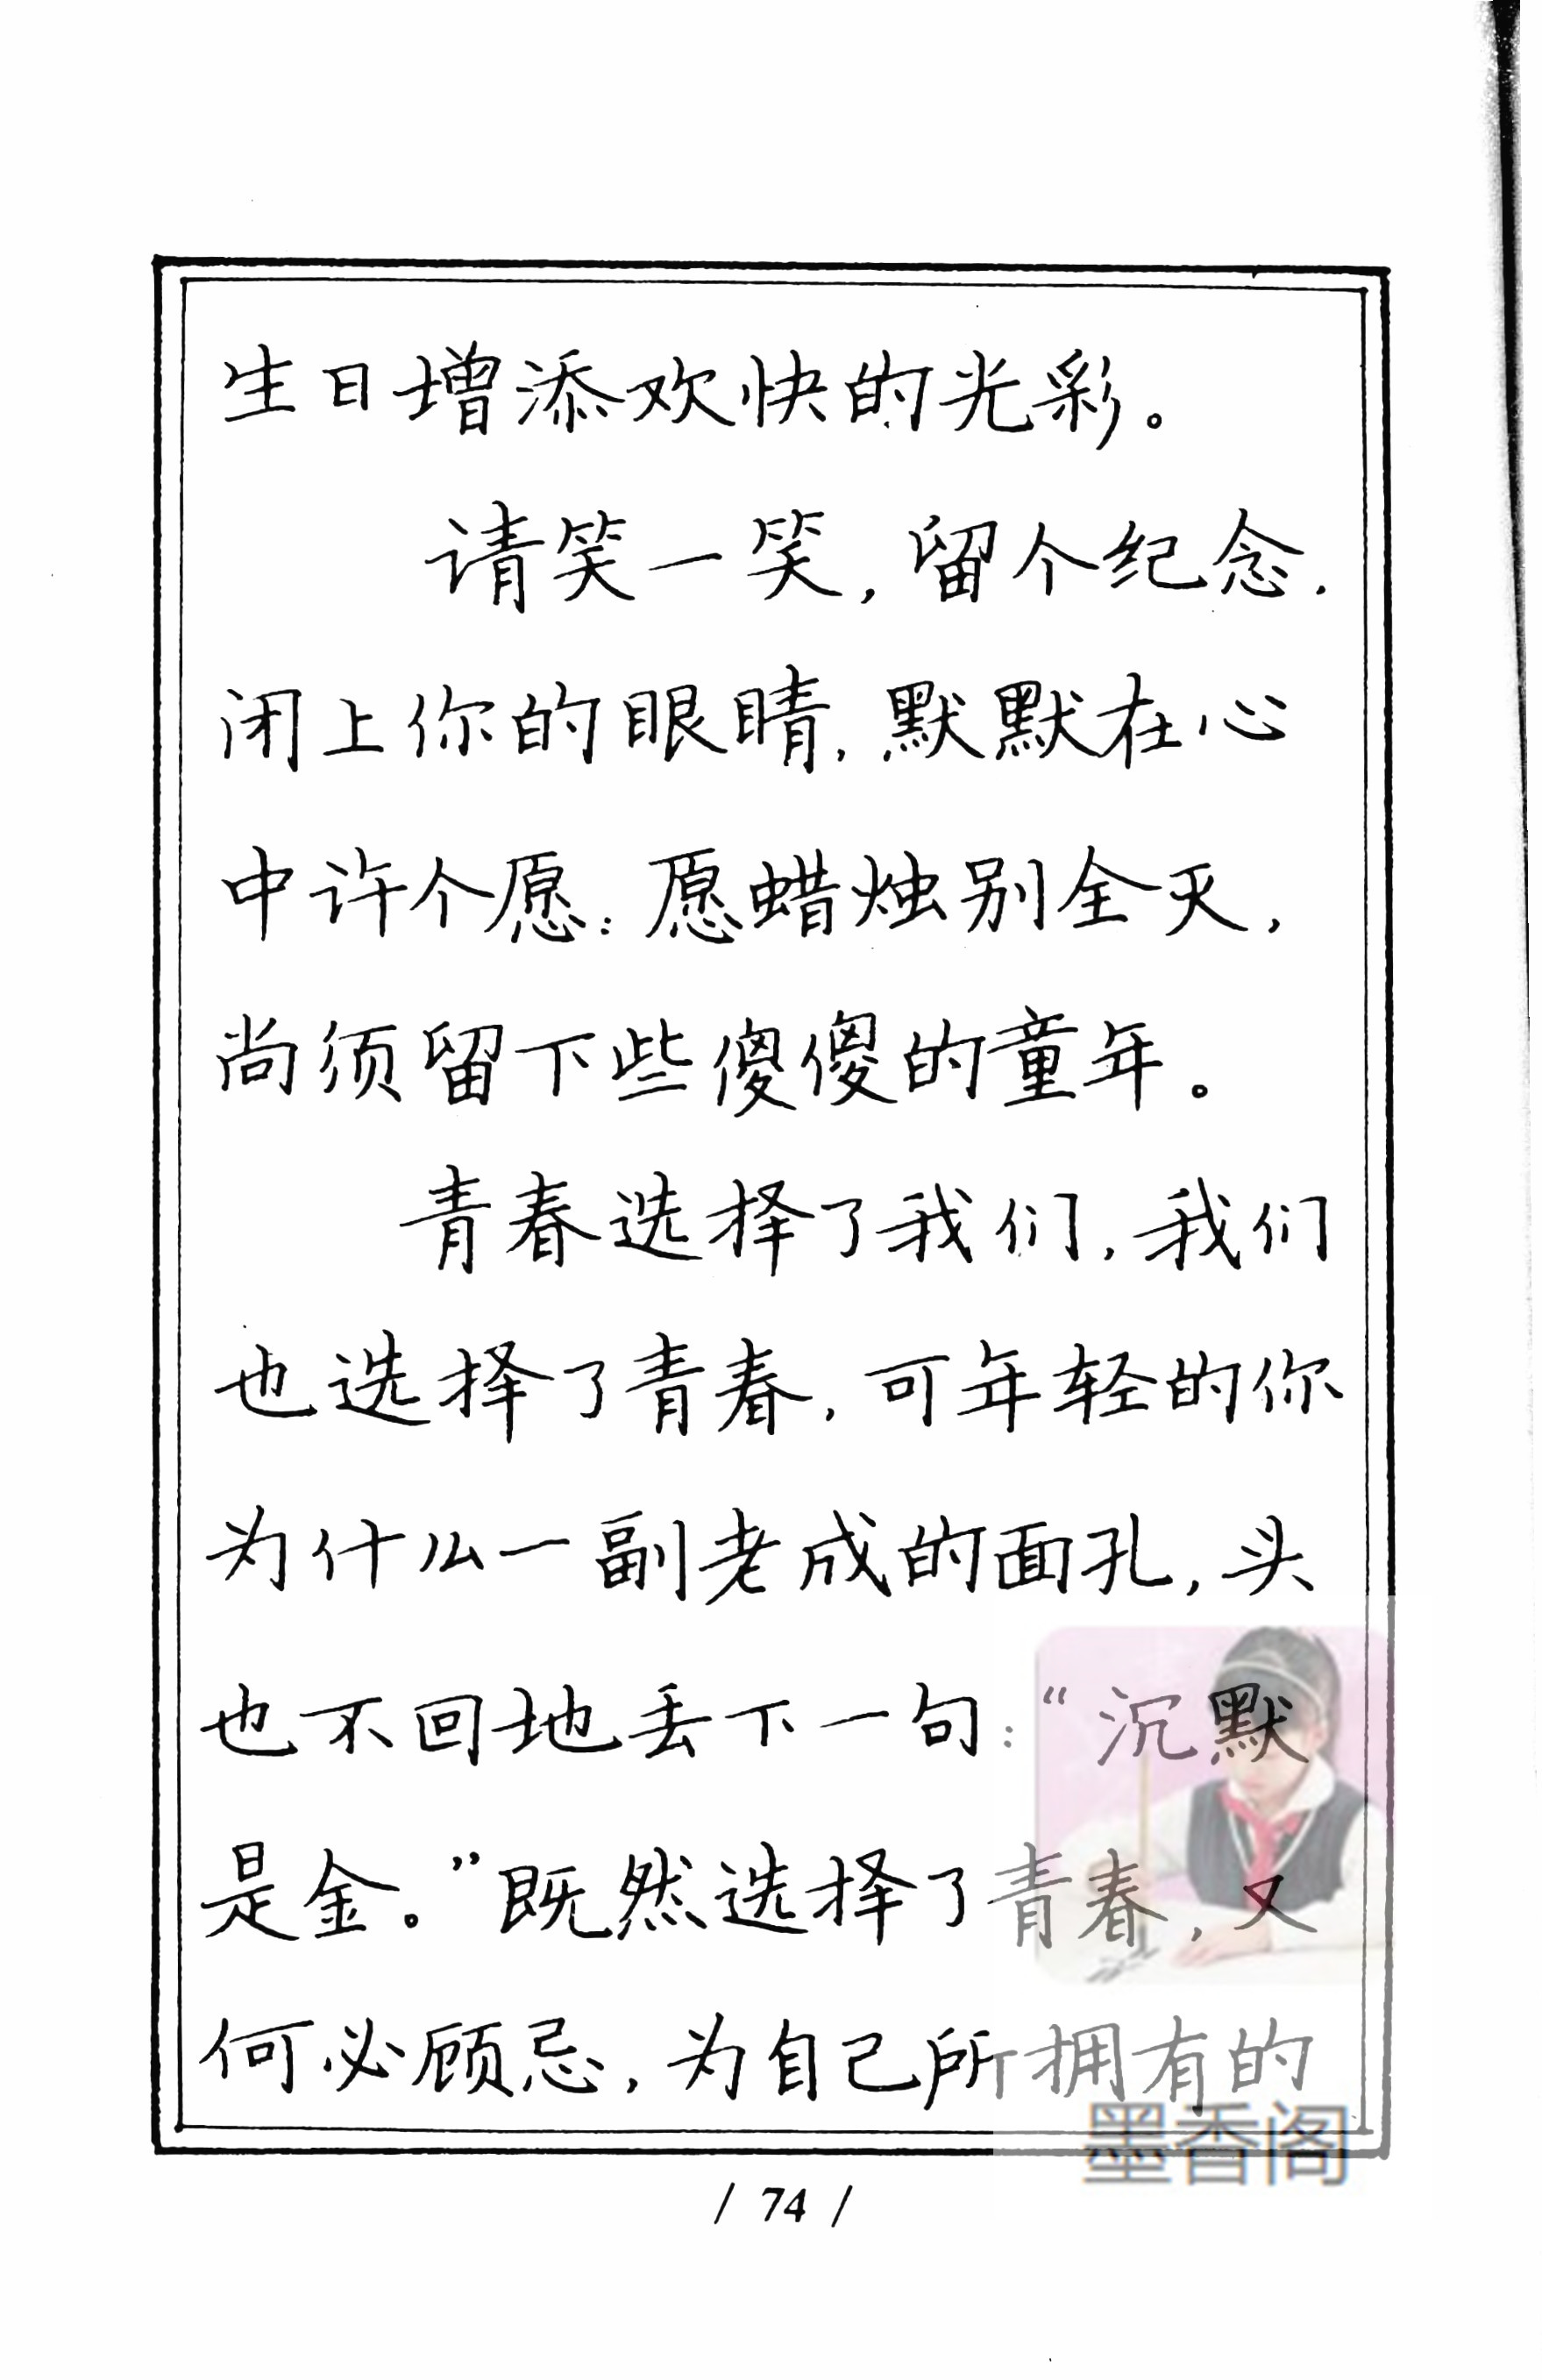 生日增添欢快的光彩。
请笑一笑，留个纪念，
闭上你的眼睛，默默在心
中许个愿：愿蜡烛别全灭，
尚须留下些傻傻的童年。
青春选择了我们，我们
也选择了青春，可年轻的你
为什么一副老成的面孔，头
也不回地丢下一句：“沉默
是金。”既然选择了青春，又
何必顾忌，为自己所拥有的
墨香阁
/ 74 /